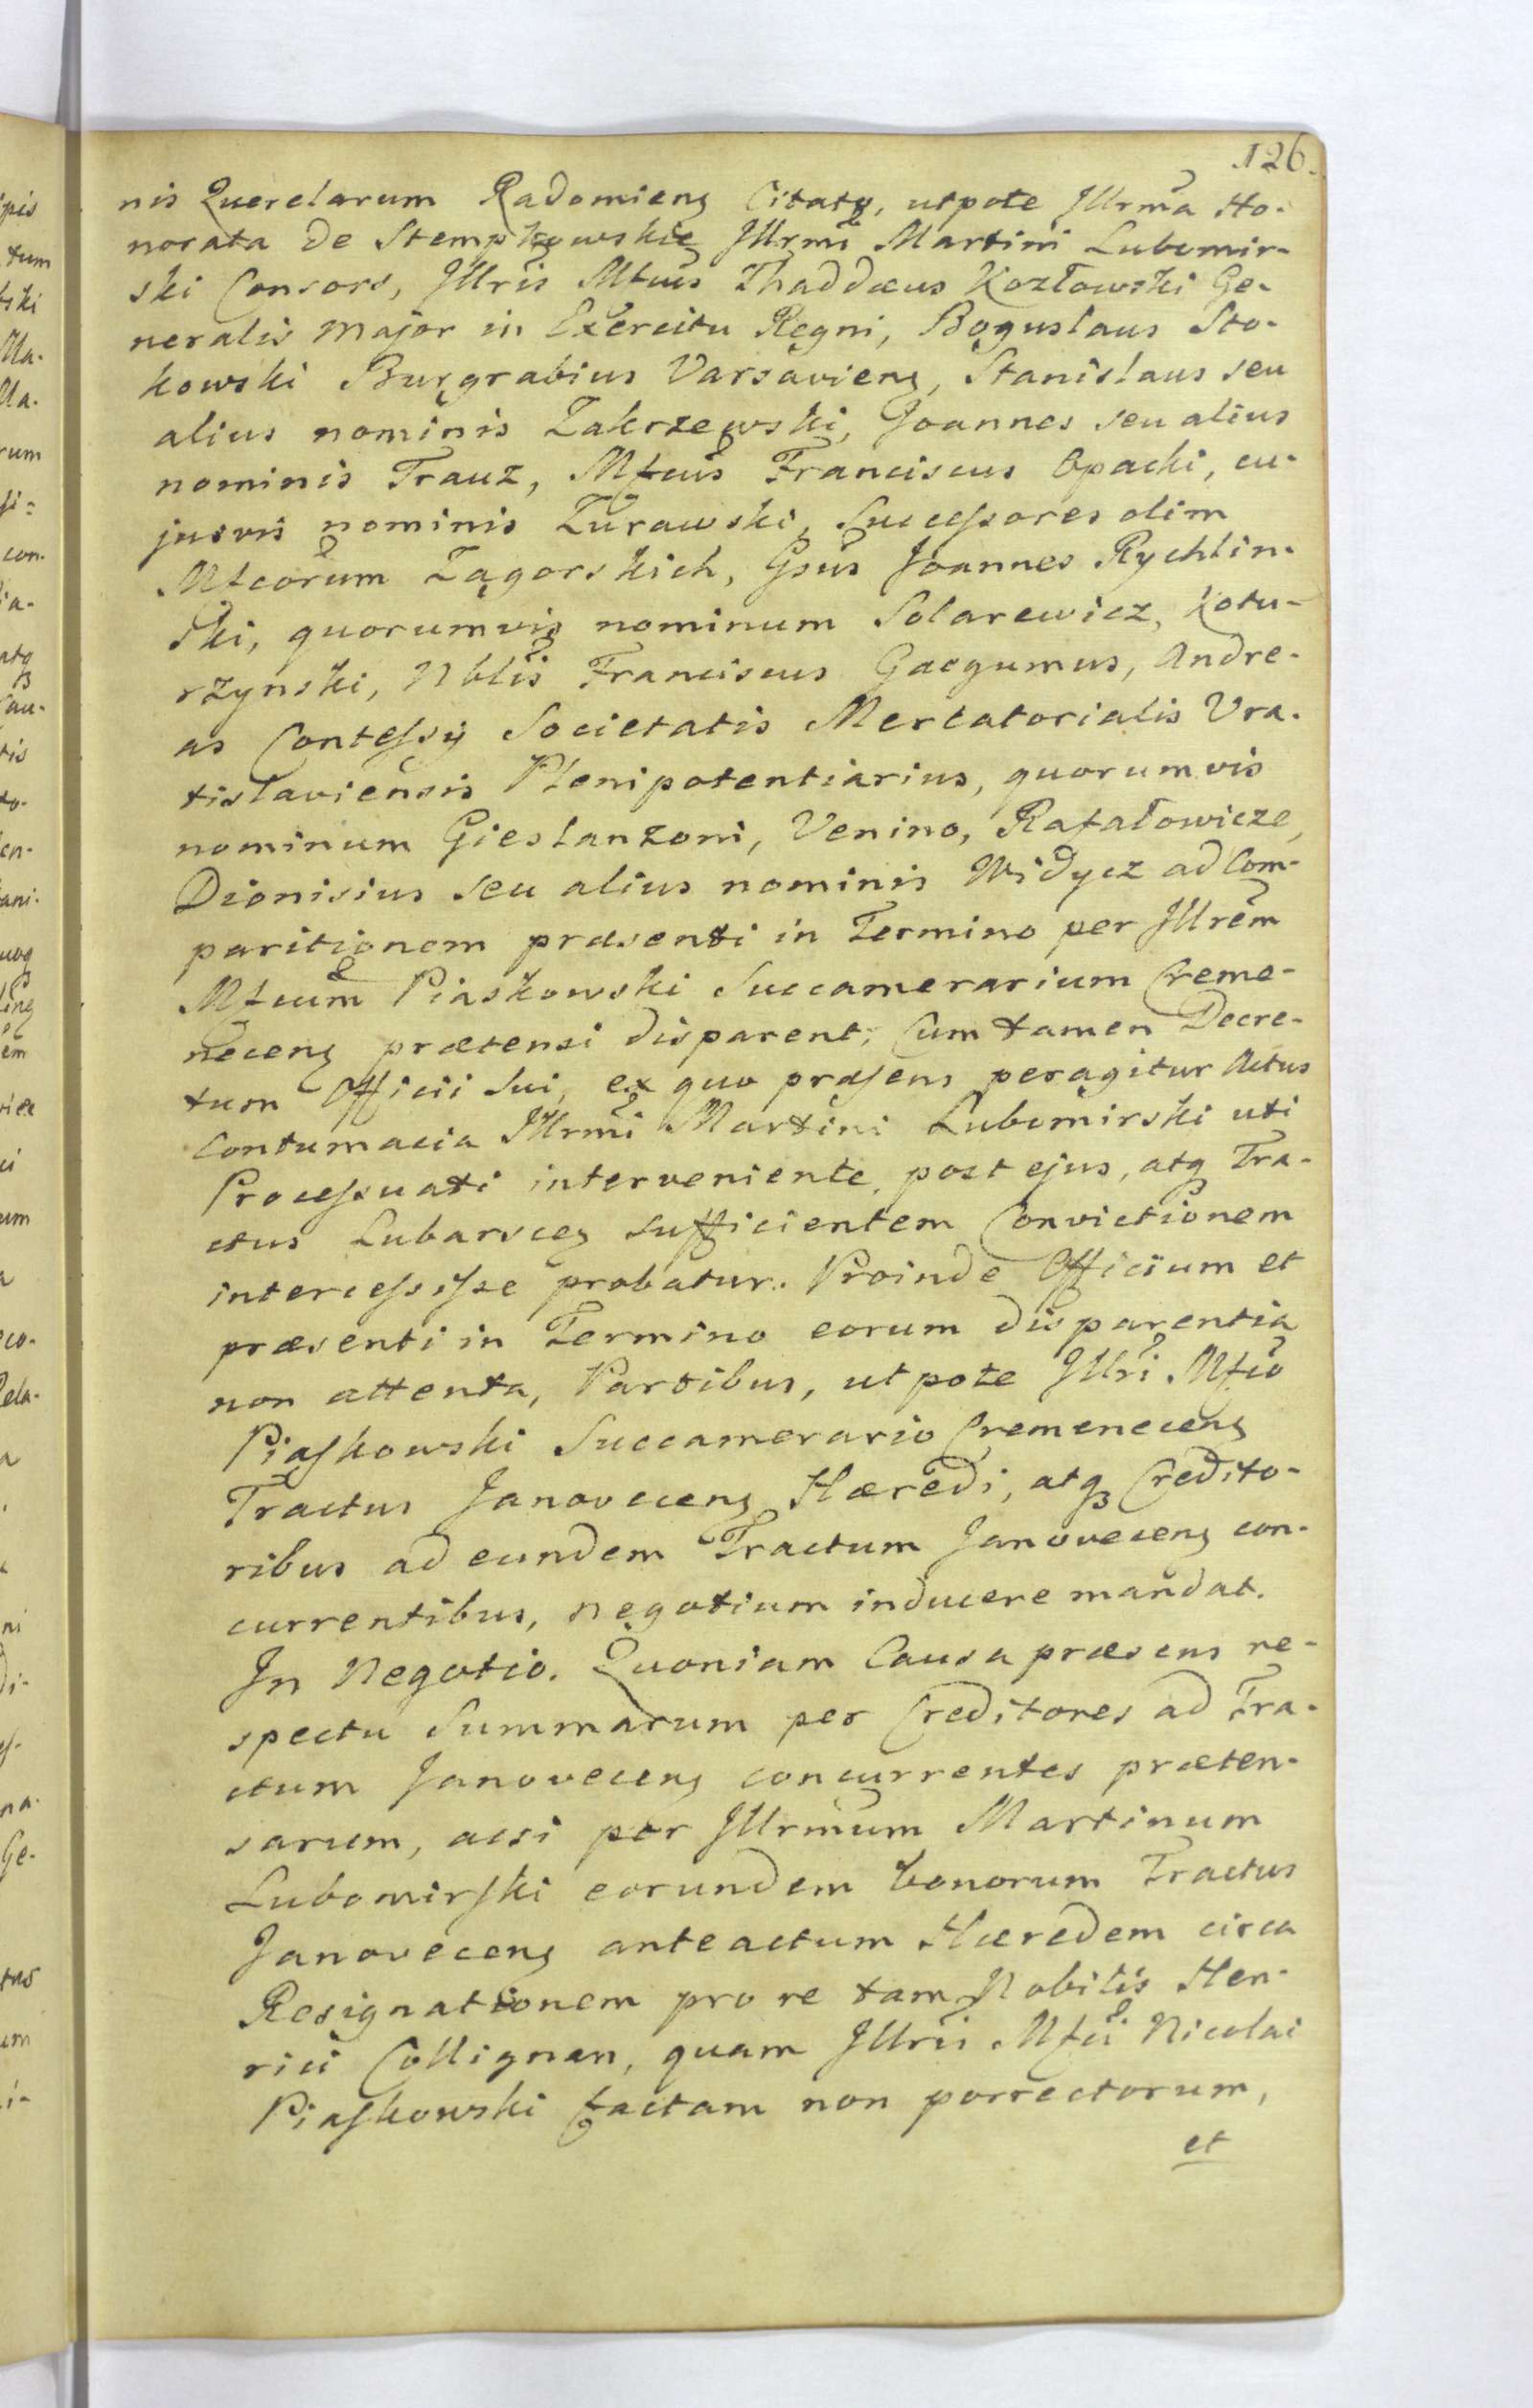 126.
nis Querelarum Radomieng Citaty, utpote Jllrma Ho-
norata de Stempkowskie Jllrmi Martini Lubomir-
ski Consors, Jllris Mfcus Thaddæus Kozłowski Ge-
neralis Major in Exercitu Regni, Boguslaus Sto-
kowski Burgrabius Varsavieng, Stanislaus seu
alius nominis Zakrzewski, Joannes seu alius
nominis Trauz, Mfcus Franciscus Opacki, cu-
jusvis nominis Zurawski, Successores olim
Mfcorum Zagorskich, Gsus Joannes Rychlin-
ski, quorumvis nominum Solarewicz, Kotu-
rzynski, Nblis Franciscus Gacgumus, Andre-
as Contessy Societatis Mercatorialis Vra-
tislaviensis Plenipotentiarius, quorumvis
nominum Gieslanzoni, Venino, Rafałowicze,
Dionisius seu alius nominis Widycz ad Com-
paritionem præsenti in Termino per Jllrem
Mfcum Piaskowski Succamerarium Creme-
neceng prætensi disparent; Cum tamen Decre-
tum Officii Sui, ex quo præsens peragitur Actus
Contumacia Jllrmi Martini Lubomirski uti
Processuati interveniente, post ejus, atq Tra-
ctus Lubarsceg sufficientem Convictionem
intercessisse probatur. Proinde Officium et
præsenti in Termino eorum disparentia
non attenta, Partibus, utpote Jllri Mfco
Piaskowski Succamerario Cremeneceng
Tractus Janoveceng Hæredi, atq Credito-
ribus ad eundem Tractum Janoveceng con-
currentibus, Negotium inducere mandat.
Jn Negotio. Quoniam Causa præsens re-
spectu Summarum per Creditores ad Tra-
ctum Janoveceng concurrentes præten-
sarum, acsi per Jllrmum Martinum
Lubomirski eorundem bonorum Tractus
Janoveceng anteactum Hæredem circa
Resignationem pro re tam Nobilis Hen-
rici Collignan, quam Jllris Mfci Nicolai
Piaskowski factam non porrectorum,
et